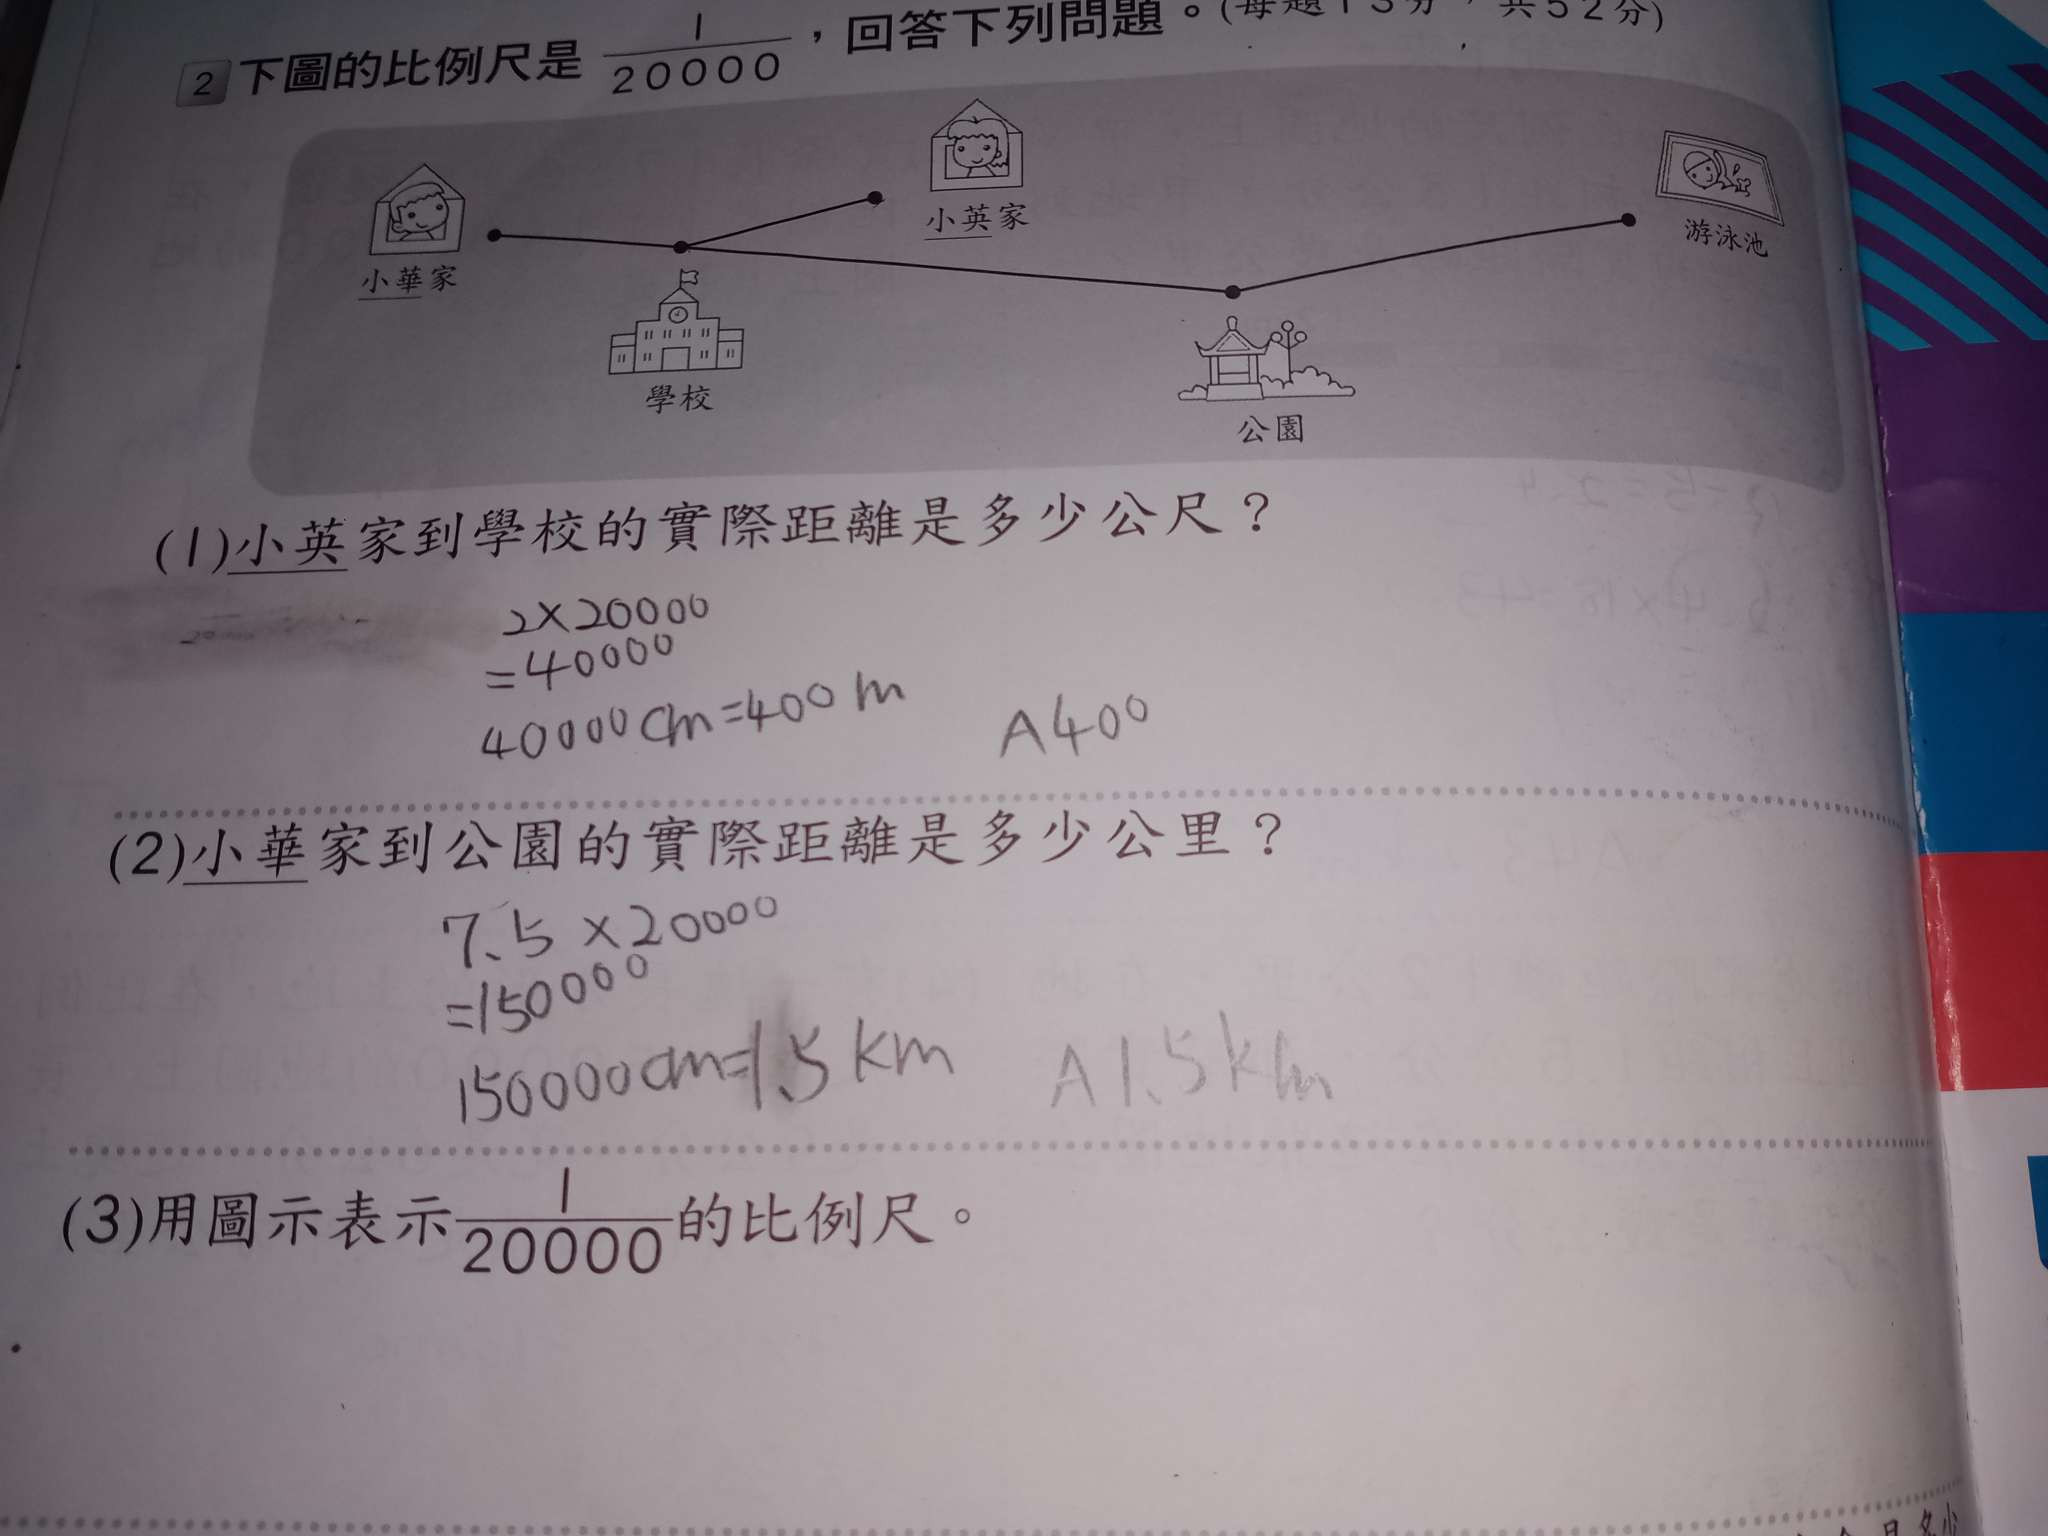 2 下圖的比例尺是 1/20000，回答下列問題。(每題13分，共52分)
小英家
游泳池
小華家
學校
公園
(1)小英家到學校的實際距離是多少公尺？
2×20000
=40000
40000cm=400m A400
(2)小華家到公園的實際距離是多少公里？
7.5×20000
=150000
150000cm=1.5km A1.5km
(3)用圖示表示1/20000的比例尺。